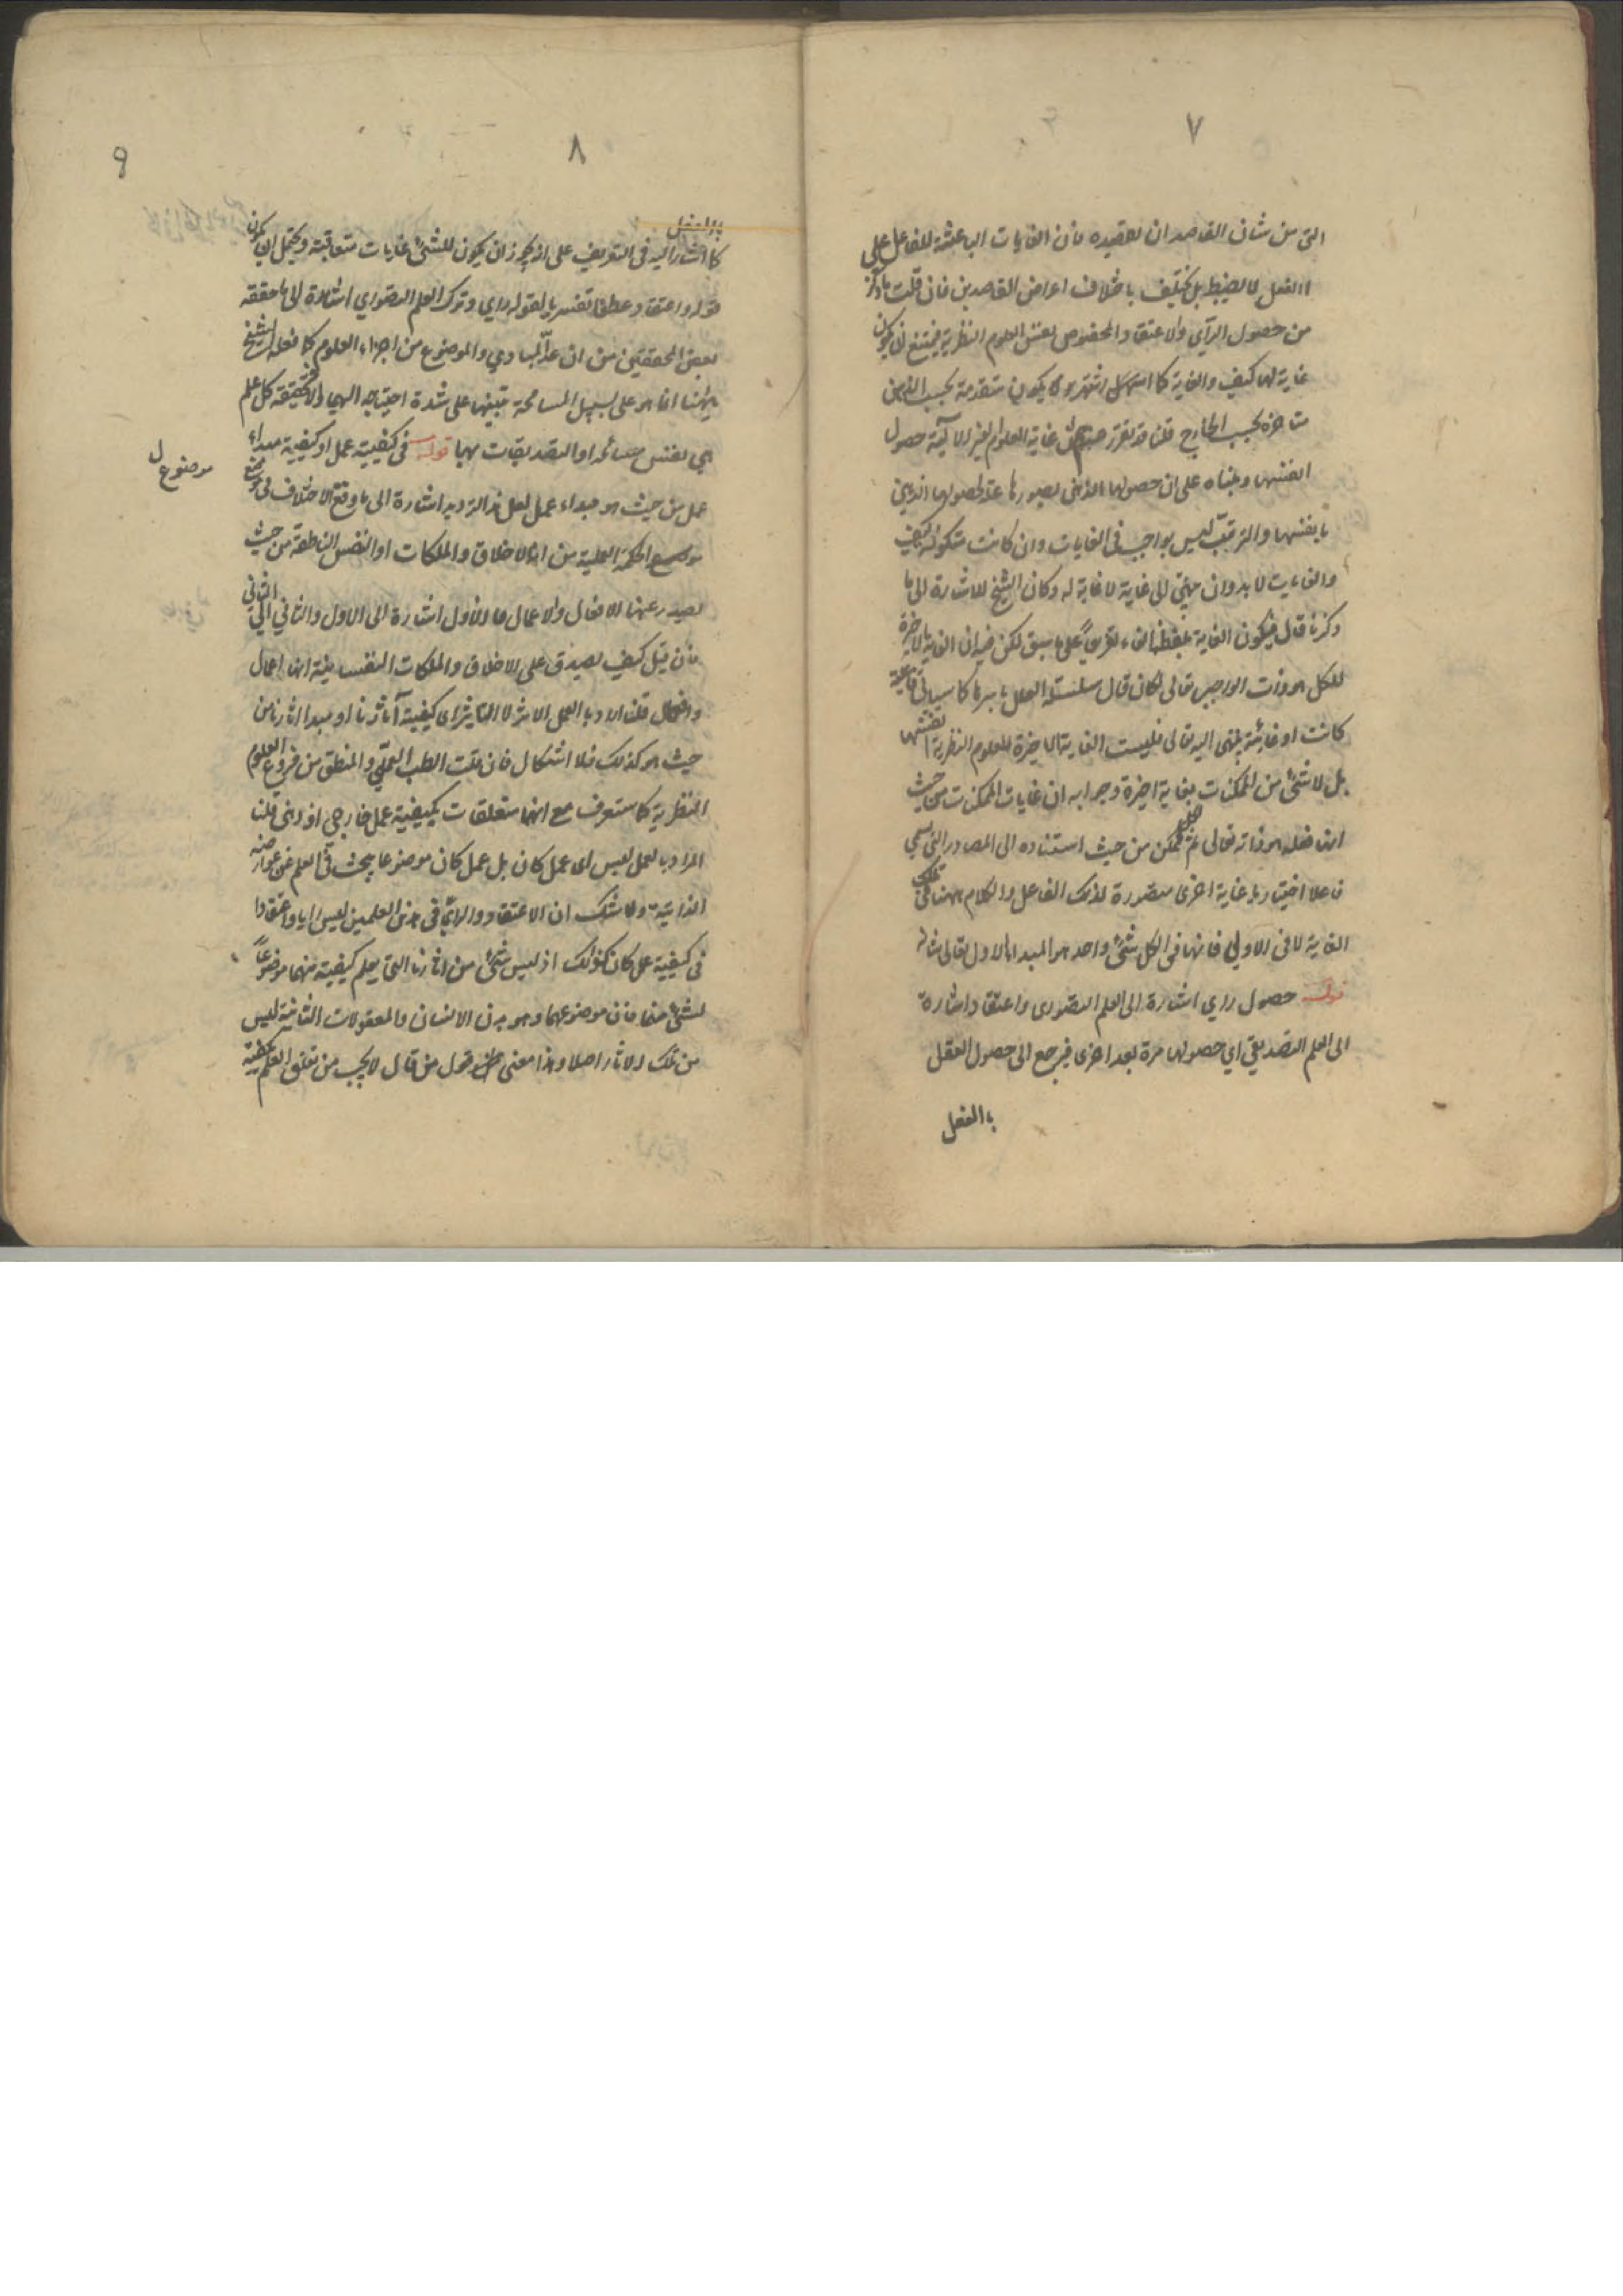 ٧
التي من شان القاصد ان يقصده فان الغايات الباعثة للفاعل على
الفعل لا يضبط بل يختلف باختلاف اعراض القاصدين فان قلت ما ذكر
من حصول الرأي والاعتقاد المخصوص نفس العلوم النظرية فيمتنع ان يكون
غاية لها كيف والغاية كما اشتهر يكون متقدمة بحسب الذهن
متاخرة بحسب الخارج قلنا قد تقرر ان غاية العلوم الغير الالية حصول
انفسها ومبناه على ان حصولها الذهني بصورها علة لحصولها الذهني
بانفسها والترتب ليس بواجب في الغايات وان كانت
والغايات لا بد وان ينتهي الى غاية لا غاية له وكان الشيخ للاشارة الى ما
ذكرنا قال فيكون الغاية بلفظ الفاء تفريعا على ما سبق لكن فيه ان الغاية الاخيرة
للكل هو ذات الواجب تعالى كان قال سلسلة العلل باسرها كما سيأتي فاعلية
كانت او غائية ينتهي اليه تعالى فليست الغاية الاخيرة للعلوم النظرية انفسها
بل لا شئ من الممكنات بغاية اخيرة وجوابه ان غايات الممكنات من حيث
انها فعله هو ذاته تعالى ثم للممكن من حيث استناده الى المصادر التي يسمى
فاعلا اختياريا غاية اخرى متصورة لذلك الفاعل والكلام ههنا في تلك
الغاية لا في الاولى فانها في الكل شئ واحد هو المبدا الاول تعالى شانه
قوله حصول راي اشارة الى العلم التصوري واعتقاد اشارة
الى العلم التصديقي اي حصولها مرة بعد اخرى فيرجع الى حصول العقل
بالفعل
٨
٩
بالفعل
كما اشار اليه في التعريف على انه يجوز ان يكون للشئ غايات متعاقبة ويحتمل ان يكون
قوله واعتقاد عطفا تفسيريا لقوله راي وترك العلم التصوري اشارة الى ما حققه
بعض المحققين من ان عدّ المبادي والموضوع من اجزاء العلوم كما فعله الشيخ
ههنا انما هو على سبيل المسامحة تنبيها على شدة احتياجه اليهما والا فحقيقة كل علم
هي نفس مسائله او التصديقات بها قوله في كيفية عمل او كيفية مبداء
عمل من حيث هو مبداء عمل لعل هذا الترديد اشارة الى ما وقع الاختلاف في موضوع
موضوع الحكمة العملية من انه الاخلاق والملكات او النفس الناطقة من حيث
موضوع
يصدر عنها الافعال والاعمال فالاول اشارة الى الاول والثاني الى الثاني
فان قيل كيف يصدق على الاخلاق والملكات النفسانية انها اعمال
وافعال قلنا اراد بالعمل الاثر لا التاثير اي كيفية آثارنا او مبدا اثارنا من
حيث هو كذلك فلا اشكال فان قلت الطب العملي والمنطق من فروع العلوم
النظرية كما ستعرف مع انهما متعلقات بكيفية عمل خارجي او ذهني قلنا
المراد بالعمل ليس اي عمل كان بل عمل كان موضوعا يبحث في العلم عن عوارضه
الذاتية ولا شك ان الاعتقاد والراي في هذين العلمين ليس رايا واعتقادا
في كيفية عمل كان كذلك اذ ليس شئ من اثارنا التي يعلم كيفيته منهما موضوعا
لشئ منهما فان موضوعهما وهو بدن الانسان والمعقولات الثانية ليس
من تلك الاثار اصلا وهذا معنى قول من قال لا يجب من تعلق العلم بكيفية